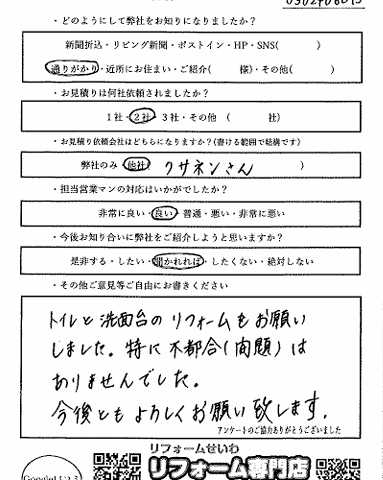 ・どのようにして弊社をお知りになりましたか?
新聞折込・リビング新聞・ポストイン・HP・SNS( )
通りがかり・近所にお住まい・ご紹介( 様)・その他( )
・お見積りは何社依頼されましたか?
1社・2社・3社・その他 ( 社)
・お見積り依頼会社はどちらになりますか?(書ける範囲で結構です)
弊社のみ・他社( クサネンさん )
・担当営業マンの対応はいかがでしたか?
非常に良い・良い・普通・悪い・非常に悪い
・今後お知り合いに弊社をご紹介しようと思いますか?
是非する・したい・聞かれれば・したくない・絶対しない
・その他ご意見等ご自由にお書きください
トイレと洗面台のリフォームをお願い
しました。特に不都合(問題)は
ありませんでした。
今後ともよろしくお願い致します。
アンケートのご協力ありがとうございました
リフォームせいわ
リフォーム専門店